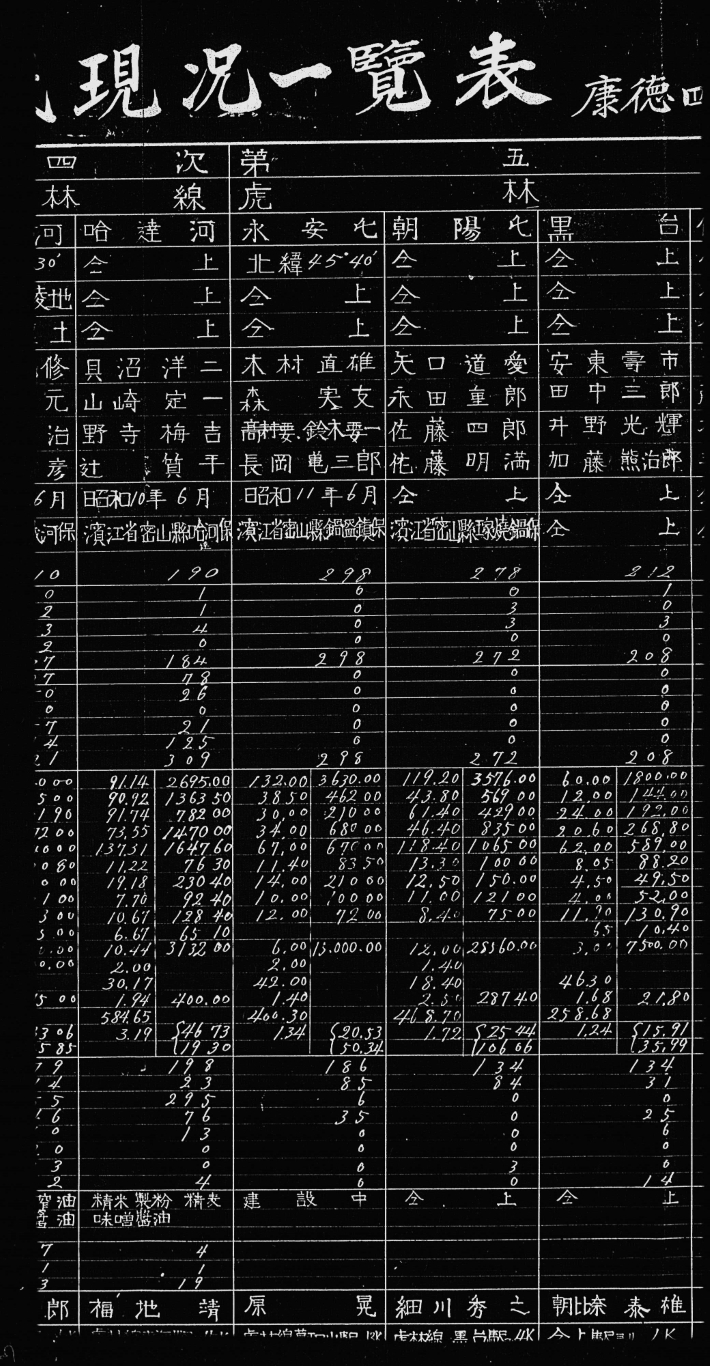 現況一覽表 康德四
四 次 第 五
林 線 虎 林
河 哈達河 永安屯 朝陽屯 黒台
30′ 仝上 北緯45°40′ 仝上 仝上
陵地 仝上 仝上 仝上 仝上
土 仝上 仝上 仝上 仝上
修 貝沼洋二 木村直雄 矢口道愛 安東壽市
元 山崎定一 森実友 永田重郎 田中三郎
治 野寺梅吉 高村要.鈴木要一 佐藤四郎 井野光輝
彦 辻 質平 長岡亀三郎 佐藤明滿 加藤熊治郎
6月 昭和10年6月 昭和11年6月 仝上 仝上
河保 濱江省密山縣哈河保 濱江省密山縣鍋盔鎮保 濱江省密山縣 燒鍋保 仝上
10 190 298 278 212
0 1 0 0 1
2 1 0 3 0
3 4 0 3 3
2 0 0 0 0
7 184 298 272 208
7 78 0 0 0
0 26 0 0 0
0 0 0 0 0
7 21 0 0 0
4 125 0 0 0
21 309 298 272 208
0.00 91.14 2695.00 132.00 3630.00 119.20 3576.00 60.00 1800.00
5 00 90.92 1363 50 38.50 462 00 43.80 569 00 12.00 144.00
1 90 91.74 782 00 30.00 210 00 61.40 429 00 24.00 192.00
72 00 73.55 1470 00 34.00 680 00 46.40 835 00 20.60 268.80
00 00 137.31 1647 60 67.00 670 00 118.40 1065 00 62.00 589.00
0 80 11.22 76 30 11.40 83 50 13.30 100 00 8.05 88.20
0 00 19.18 230 40 14.00 210 00 12.50 150.00 4.50 49.50
1 00 7.70 92 40 10.00 100 00 11.00 121 00 4.00 52.00
3 00 10.67 128 40 12.00 72 00 8.40 75 00 11.90 130.90
5 00 6.67 65 10 65 10.40
.00 10.44 3132 00 6.00 13.000.00 12.00 28560.00 3.00 7500.00
0.00 2.00 2.00 1.40
30.17 42.00 18.40 4630
75 00 1.94 400.00 1.40 2.50 287 40 1.68 21.80
584.65 400.30 468.70 258.68
3 06 3.19 46 73 1.34 20.53 1.72 25 44 1.24 15.91
5 85 19 30 50.34 106 06 35.99
9 198 186 134 134
4 23 85 84 31
5 295 6 0 0
6 76 35 0 25
0 13 0 0 6
0 0 0 0 0
3 0 0 3 0
2 4 0 0 14
窄油 精米 製粉 精麦 建設中 仝上 仝上
醤油 味噌醤油
7 4
1 1
3 19
郎 福地靖 原晃 細川秀之 朝比奈泰雄
虎林線 黒台駅 4K 仝上駅 1K